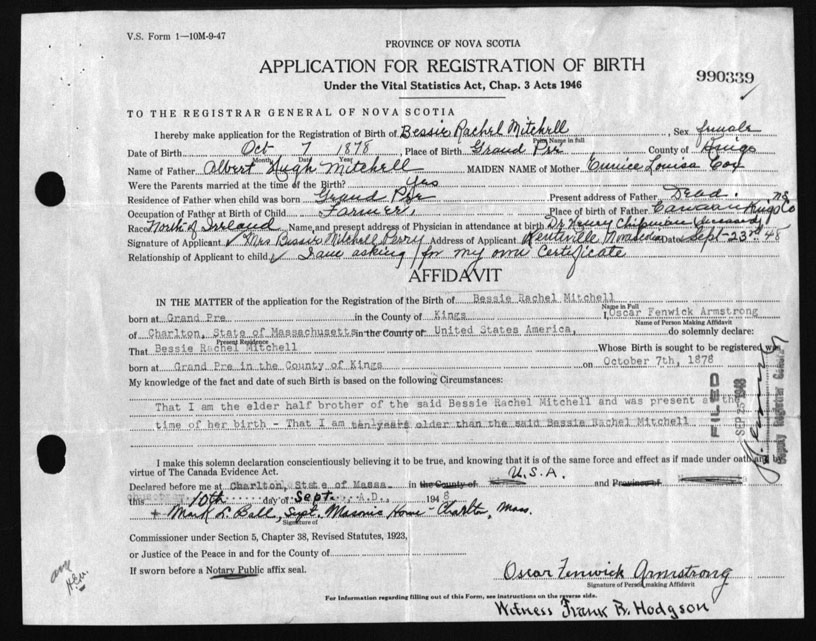 V.S. Form 1—10M-9-47
PROVINCE OF NOVA SCOTIA
APPLICATION FOR REGISTRATION OF BIRTH
990339
Under the Vital Statistics Act, Chap. 3 Acts 1946
TO THE REGISTRAR GENERAL OF NOVA SCOTIA
I hereby make application for the Registration of Birth of Bessie Rachel Mitchell, Sex female
Print Name in full
Date of Birth Oct 7 1878, Place of Birth Grand Pre County of Kings
Month Day Year
Name of Father Albert Hugh Mitchell MAIDEN NAME of Mother Eunice Louisa Cox
Were the Parents married at the time of the Birth? Yes
Residence of Father when child was born Grand Pre Present address of Father Dead.
Occupation of Father at Birth of Child Farmer, Place of birth of Father Canaan Kings Co NS
Race North of Ireland Name and present address of Physician in attendance at birth Dr Henry Chipman (deceased)
Signature of Applicant ✓ Mrs Bessie Mitchell Perry Address of Applicant Kentville Nova Scotia Date Sept-23rd 48
Relationship of Applicant to child ✓ I am asking for my own Certificate
AFFIDAVIT
IN THE MATTER of the application for the Registration of the Birth of Bessie Rachel Mitchell
Name in Full
born at Grand Pre in the County of Kings I, Oscar Fenwick Armstrong
Name of Person Making Affidavit
of Charlton, State of Massachusetts in the County of United States America, do solemnly declare:
Present Residence
That Bessie Rachel Mitchell Whose Birth is sought to be registered was
born at Grand Pre in the County of Kings on October 7th, 1878
My knowledge of the fact and date of such Birth is based on the following Circumstances:
That I am the elder half brother of the said Bessie Rachel Mitchell and was present at the
time of her birth - That I am ten years older than the said Bessie Rachel Mitchell
FILED
SEP 1948
Deputy Registrar General
I make this solemn declaration conscientiously believing it to be true, and knowing that it is of the same force and effect as if made under oath and by
virtue of The Canada Evidence Act.
U.S.A.
Declared before me at Charlton, State of Massa. in the County of and Province of
this 10th day of Sept. A.D., 1948
+ Mark L. Ball, Supt. Masonic Home - Charlton, Mass.
Signature of
Commissioner under Section 5, Chapter 38, Revised Statutes, 1923,
or Justice of the Peace in and for the County of
If sworn before a Notary Public affix seal.
Oscar Fenwick Armstrong
Signature of Person making Affidavit
For Information regarding filling out of this Form, see instructions on the reverse side.
Witness Frank R. Hodgson